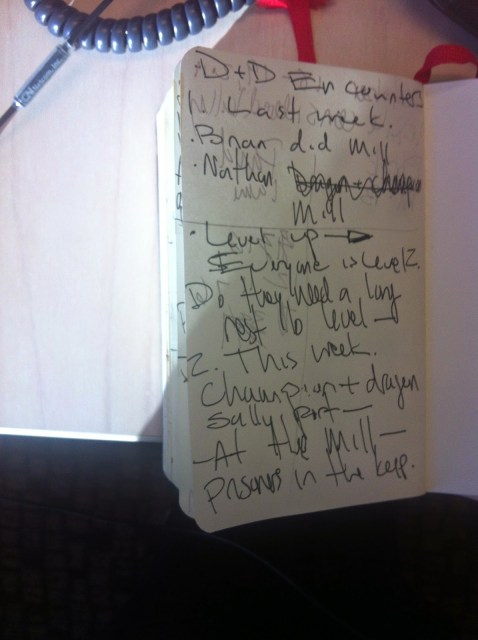 D+D Encounters
1. Last week.
· Brian did Mill
· Nathan Dragon + champion
Mill
· Level up →
Everyone is Level 2.
Do they need a long
rest to level —
2. This week.
Champion + dragon
sally port —
— At the Mill —
Prisoners in the keep.